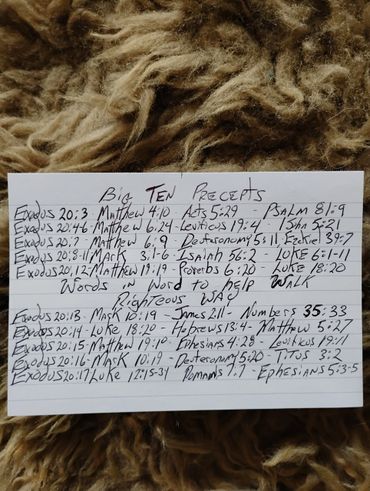 Big Ten Precepts
Exodus 20:3 Matthew 4:10 Acts 5:29 - Psalm 81:9
Exodus 20:4-6 Matthew 6:24 - Leviticus 19:4 - 1 John 5:21
Exodus 20:7 - Matthew 6:9 - Deuteronomy 5:11, Ezekiel 39:7
Exodus 20:8-11 Mark 3:1-6 - Isaiah 56:2 - Luke 6:1-11
Exodus 20:12 Matthew 19:19 - Proverbs 6:20 - Luke 18:20
Words in Word to help Walk
Righteous Way
Exodus 20:13 - Mark 10:19 - James 2:11 - Numbers 35:33
Exodus 20:14 - Luke 18:20 - Hebrews 13:4 - Matthew 5:27
Exodus 20:15 - Matthew 19:10 - Ephesians 4:28 - Leviticus 19:11
Exodus 20:16 - Mark 10:19 - Deuteronomy 5:20 - Titus 3:2
Exodus 20:17 Luke 12:15-31 Romans 7:7 - Ephesians 5:3-5